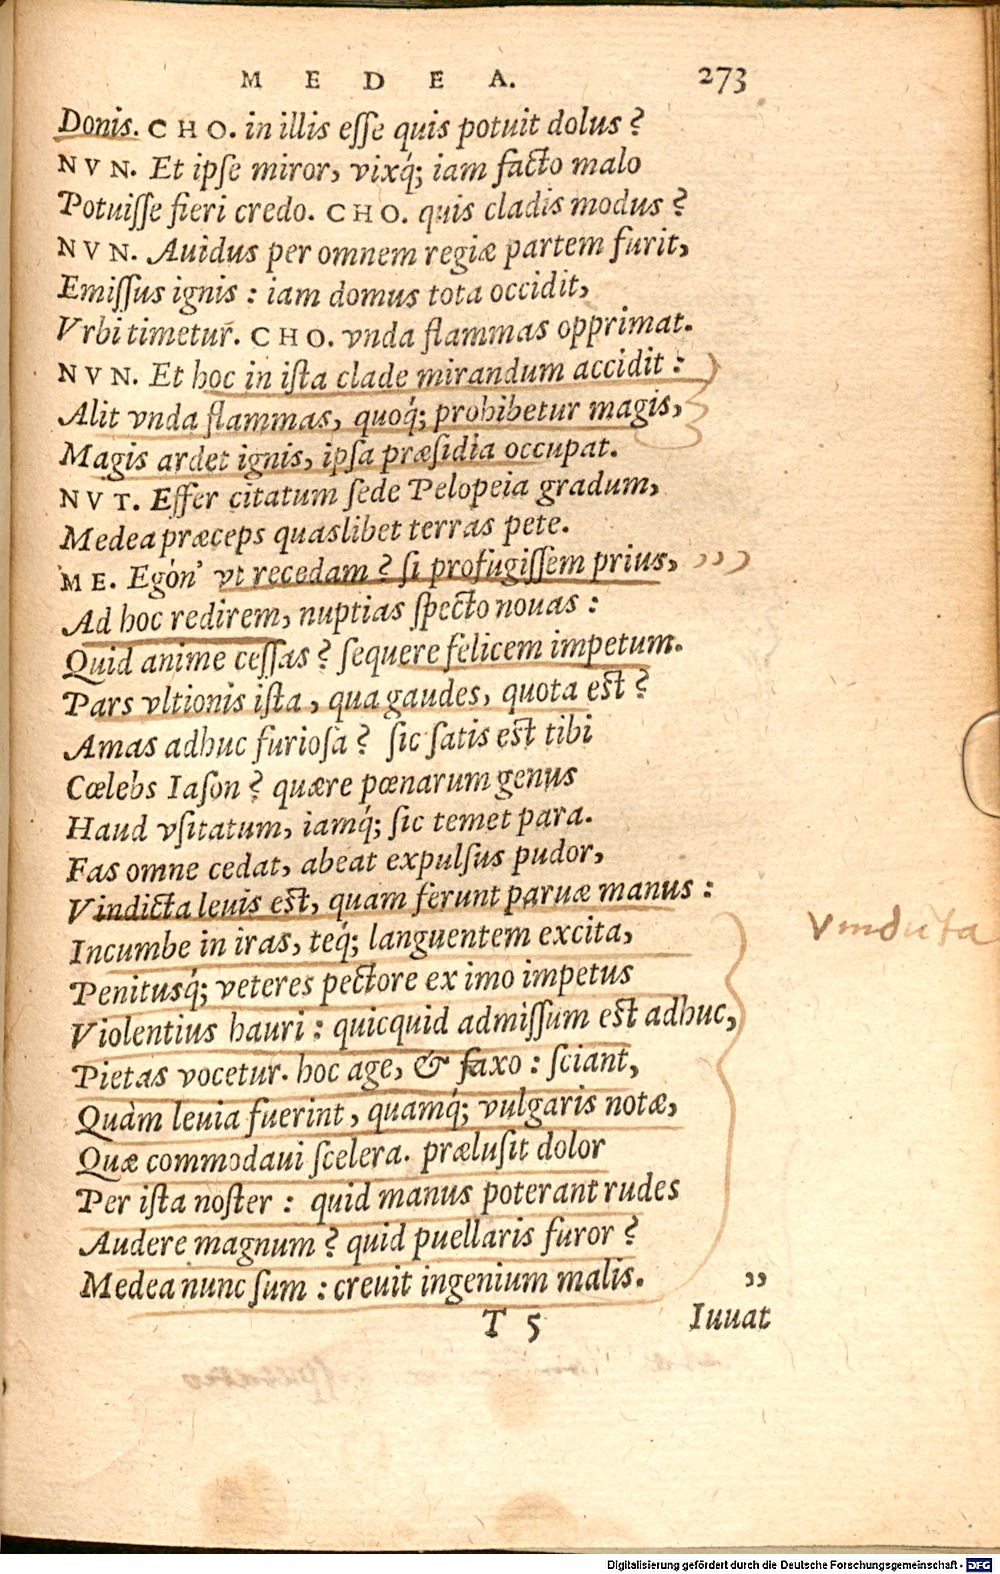 M E D E A. 273
Donis. CHO. in illis eſſe quis potuit dolus?
NVN. Et ipſe miror, vixq́; iam facto malo
Potuiſſe fieri credo. CHO. quis cladis modus?
NVN. Auidus per omnem regiæ partem furit,
Emiſſus ignis: iam domus tota occidit,
Vrbi timetur. CHO. vnda flammas opprimat.
NVN. Et hoc in iſta clade mirandum accidit:
Alit vnda flammas, quoq́; prohibetur magis,
Magis ardet ignis, ipſa præſidia occupat.
NVT. Effer citatum ſede Pelopeia gradum,
Medea præceps quaslibet terras pete.
ME. Egón' vt recedam? ſi profugiſſem prius, ,,,
Ad hoc redirem, nuptias ſpecto nouas:
Quid anime ceſſas? ſequere felicem impetum.
Pars vltionis iſta, qua gaudes, quota eſt?
Amas adhuc furioſa? ſic ſatis eſt tibi
Cœlebs Iaſon? quære pœnarum genus
Haud vſitatum, iamq́; ſic temet para.
Fas omne cedat, abeat expulſus pudor,
Vindicta leuis eſt, quam ferunt paruæ manus:
Vindicta
Incumbe in iras, teq́; languentem excita,
Penitusq́; veteres pectore ex imo impetus
Violentius hauri: quicquid admiſſum eſt adhuc,
Pietas vocetur. hoc age, & faxo: ſciant,
Quàm leuia fuerint, quamq́; vulgaris notæ,
Quæ commodaui ſcelera. præluſit dolor
Per iſta noſter: quid manus poterant rudes
Audere magnum? quid puellaris furor?
Medea nunc ſum: creuit ingenium malis. ,,
T 5 Iuuat
Digitalisierung gefördert durch die Deutsche Forschungsgemeinschaft - DFG